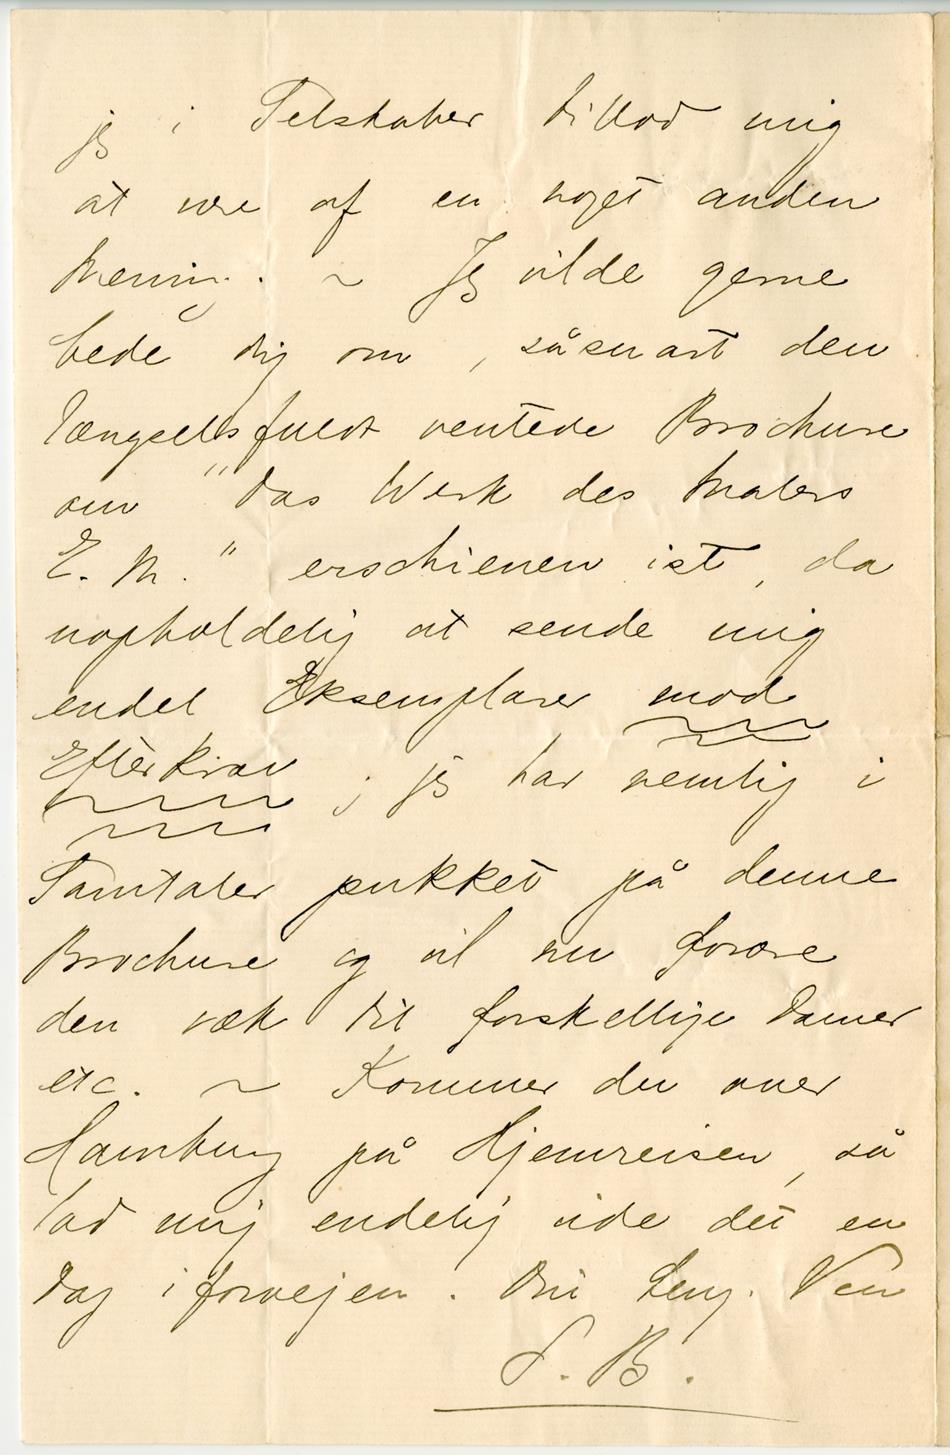 jeg i Selskaber tillod mig
at vre af en noget anden
Mening. ~ Jeg vilde gerne
bede dig om, såsnart den
længselsfuldt ventede Brochure
om "Das Werk des Malers
E. M." erschienen ist, da
uopholdelig at sende mig
endel Eksemplarer mod
Efterkrav; jeg har nemlig i
Samtaler pukket på denne
Brochure og vil nu forære
den væk til forskellige Damer
etc. ~ Kommer du over
Hamburg på Hjemreisen, så
lad mig endelig vide det en
Dag iforvejen. Din Ven